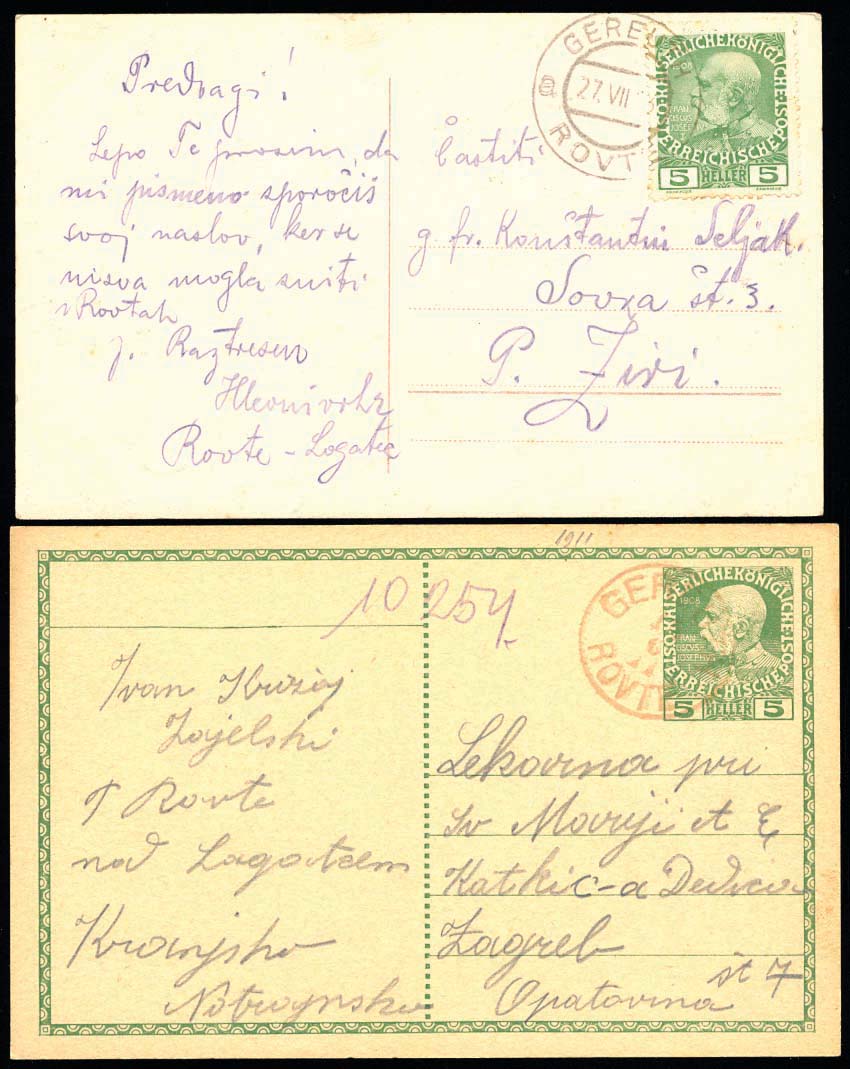 Predragi!
Lepo Te prosim, da
mi pismeno sporočiš
svoj naslov, ker se
nisva mogla sniti
v Rovtah
J. Raztresen
Hlevnivrh 2
Rovte - Logatec
GEREU
27. VII
a
ROVT
KAISERLICHE KÖNIGLICHE
ÖSTERREICHISCHE POST
1908
FRAN
CISCVS
JOSEPHVS I
5 HELLER 5
Častiti
g. fr. Konštantin Seljak.
Sovra št. 3.
P. Žiri.
1911
10 254
Ivan Kržaj
Zajelshi
P Rovte
nad Logatcem
Kranjsko
Notranjsko
GER
ROVT
KAISERLICHE KÖNIGLICHE
ÖSTERREICHISCHE POST
1908
FRAN
CISCVS
JOSEPHVS I
5 HELLER 5
Lekarna pri
Sv Mariji
Zagreb
Opatovina št 7